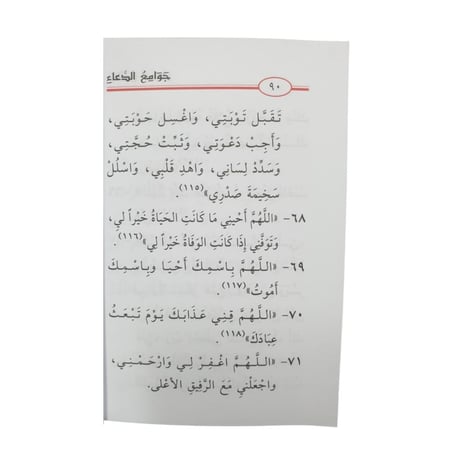 جَوَامِعُ الدُّعَاءِ
٩٠
تَقَبَّل تَوْبَتِي، وَاغْسِل حَوْبَتِي،
وَأَجِبْ دَعْوَتِي، وَثَبِّتْ حُجَّتِي،
وَسَدِّدْ لِسَانِي، وَاهْدِ قَلْبِي، وَاسْلُلْ
سَخِيمَةَ صَدْرِي»(١١٥).
٦٨- «اللَّهُمَّ أَحْيِنِي مَا كَانَتِ الحَيَاةُ خَيْراً لِي،
وَتَوَفَّنِي إِذَا كَانَتِ الوَفَاةُ خَيْراً لِي»(١١٦).
٦٩- «اللَّهُمَّ بِاسْمِكَ أَحْيَا وبِاسْمِكَ
أَمُوتُ»(١١٧).
٧٠- «اللَّهُمَّ قِنِي عَذَابَكَ يَوْمَ تَبْعَثُ
عِبَادَكَ»(١١٨).
٧١- «اللَّهُمَّ اغْفِرْ لِي وَارْحَمْنِي،
وَاجْعَلْنِي مَعَ الرَّفِيقِ الأَعْلَى.